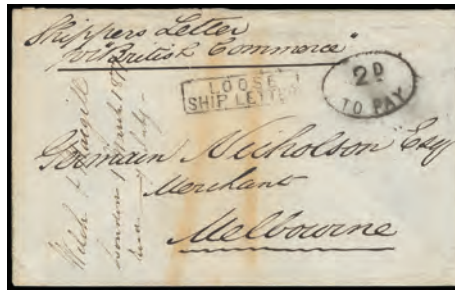 Shippers Letter
"British Commerce"
LOOSE
SHIP LETTER
2D
TO PAY
Germain Nicholson Esq
Merchant
Melbourne
London 1